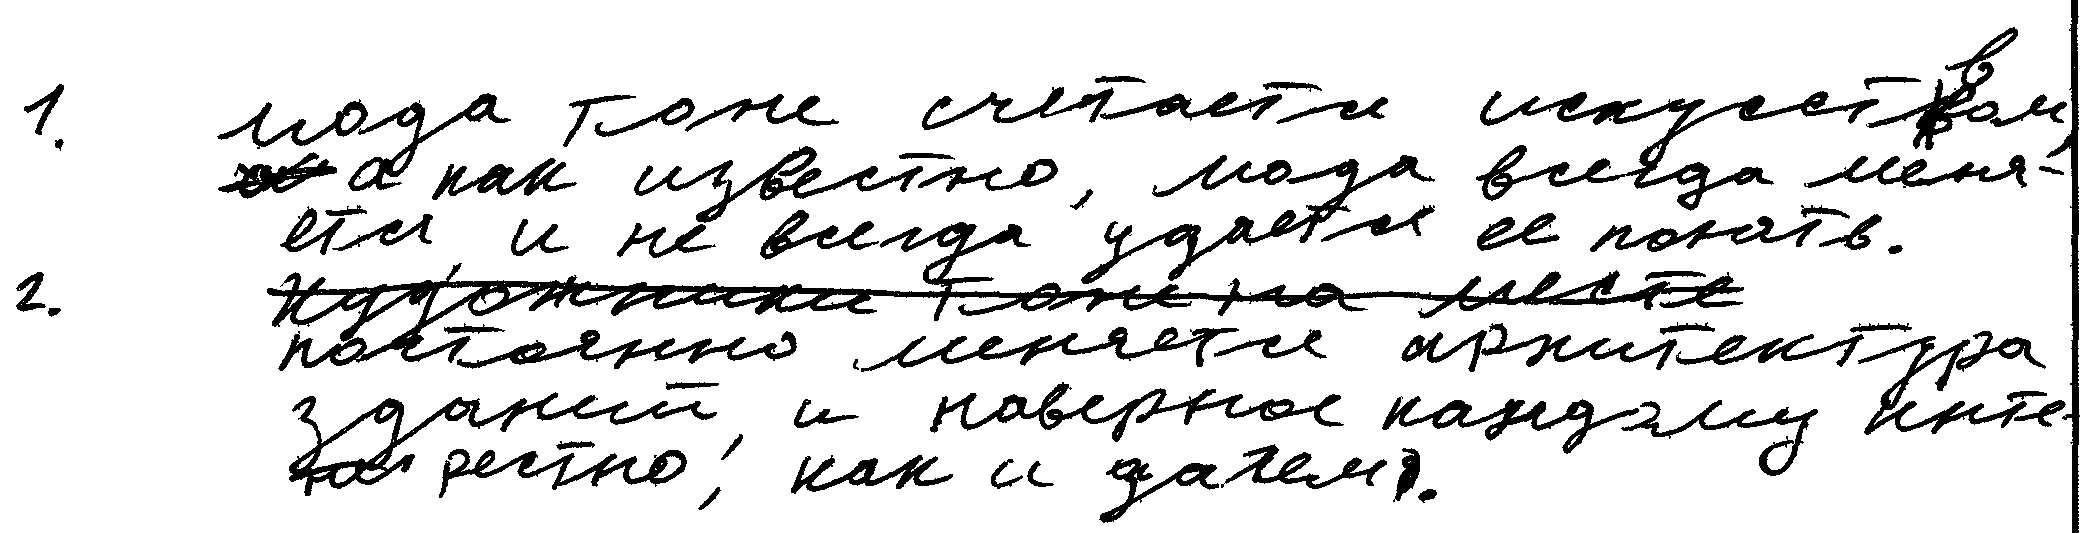 1. мода тоже счетается искусством,
а как известно, мода всегда меня-
ется, и не всегда удается ее понять.
2. ~~художники тоже на месте~~
постоянно меняется архитектура
зданий, и наверное каждому инте-
рестно, как и